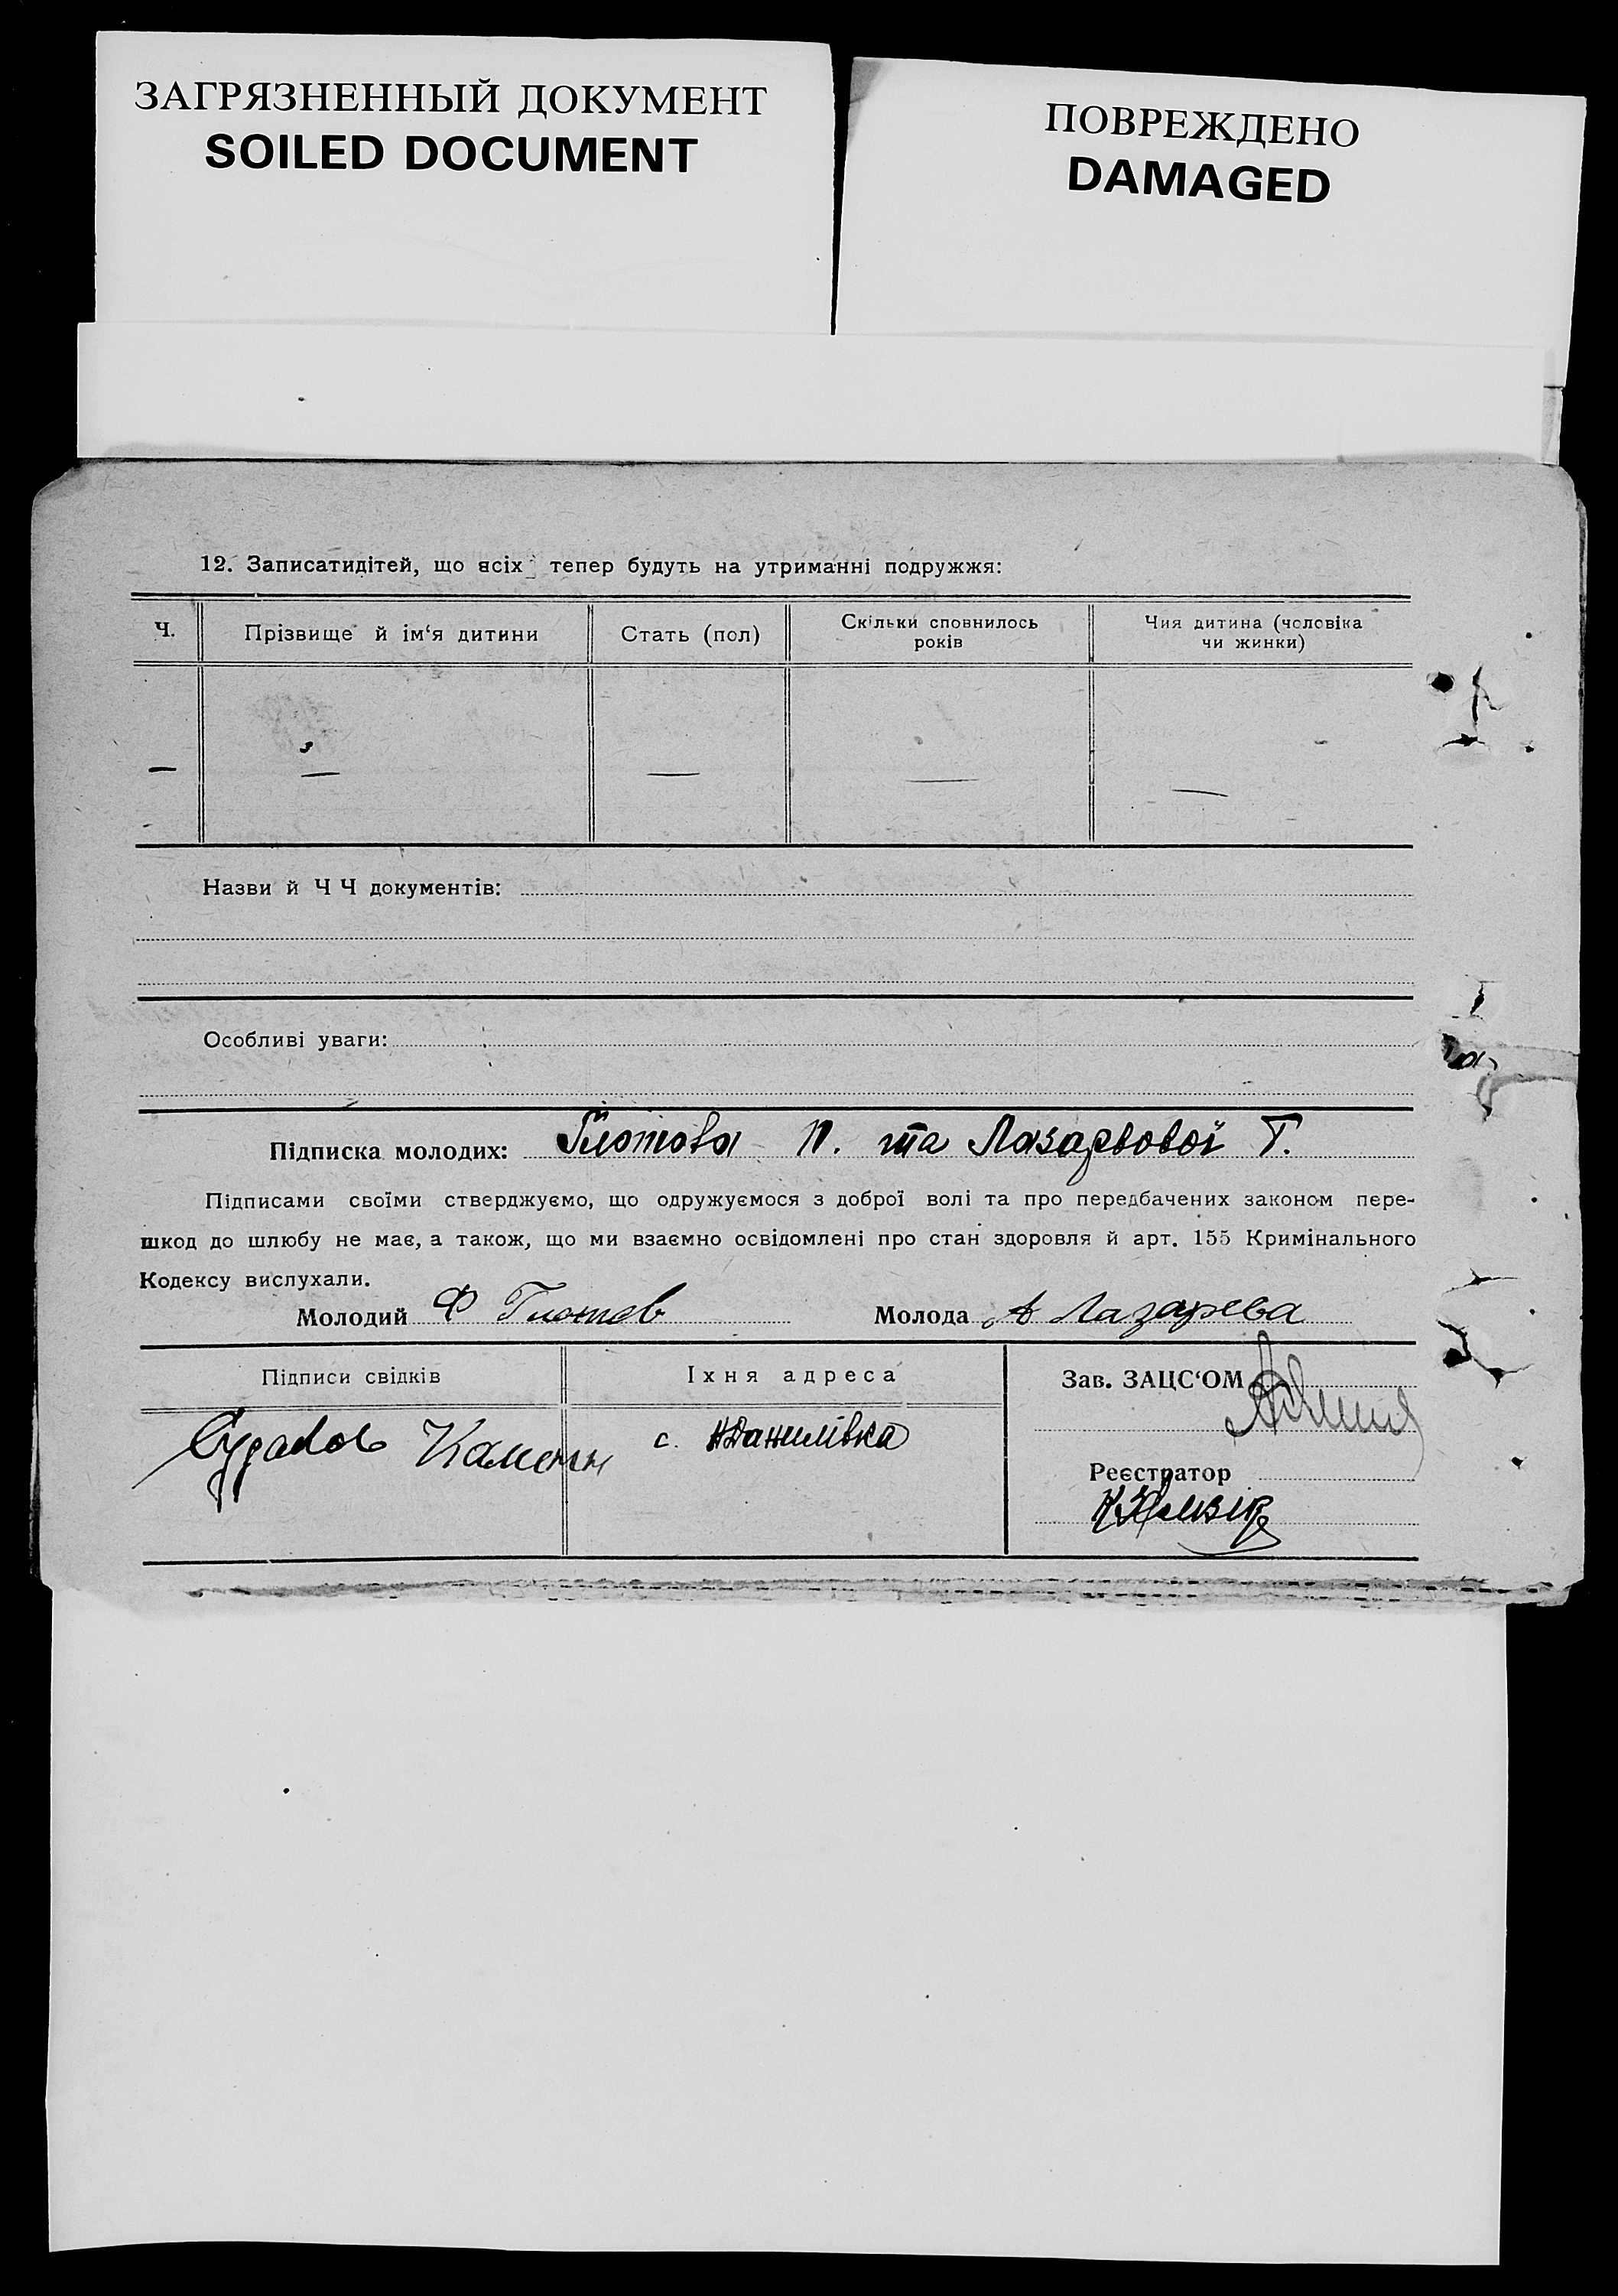 ЗАГРЯЗНЕННЫЙ ДОКУМЕНТ
SOILED DOCUMENT
ПОВРЕЖДЕНО
DAMAGED
12. Записатидітей, що всіх тепер будуть на утриманні подружжя:
Ч. Прізвище й ім‘я дитини Стать (пол) Скільки сповнилось років Чия дитина (чоловіка чи жинки)
— — — — —
Назви й Ч Ч документів:
Особливі уваги:
Підписка молодих: Глотова П. та Лазарвової Т.
Підписами своїми стверджуємо, що одружуємося з доброї волі та про передбачених законом пере-
шкод до шлюбу не має, а також, що ми взаємно освідомлені про стан здоровля й арт. 155 Кримінального
Кодексу вислухали.
Молодий Ф Глотов Молода А Лазарева
Підписи свідків Їхня адреса Зав. ЗАЦС‘ОМ
с. Данилівка
Реєстратор